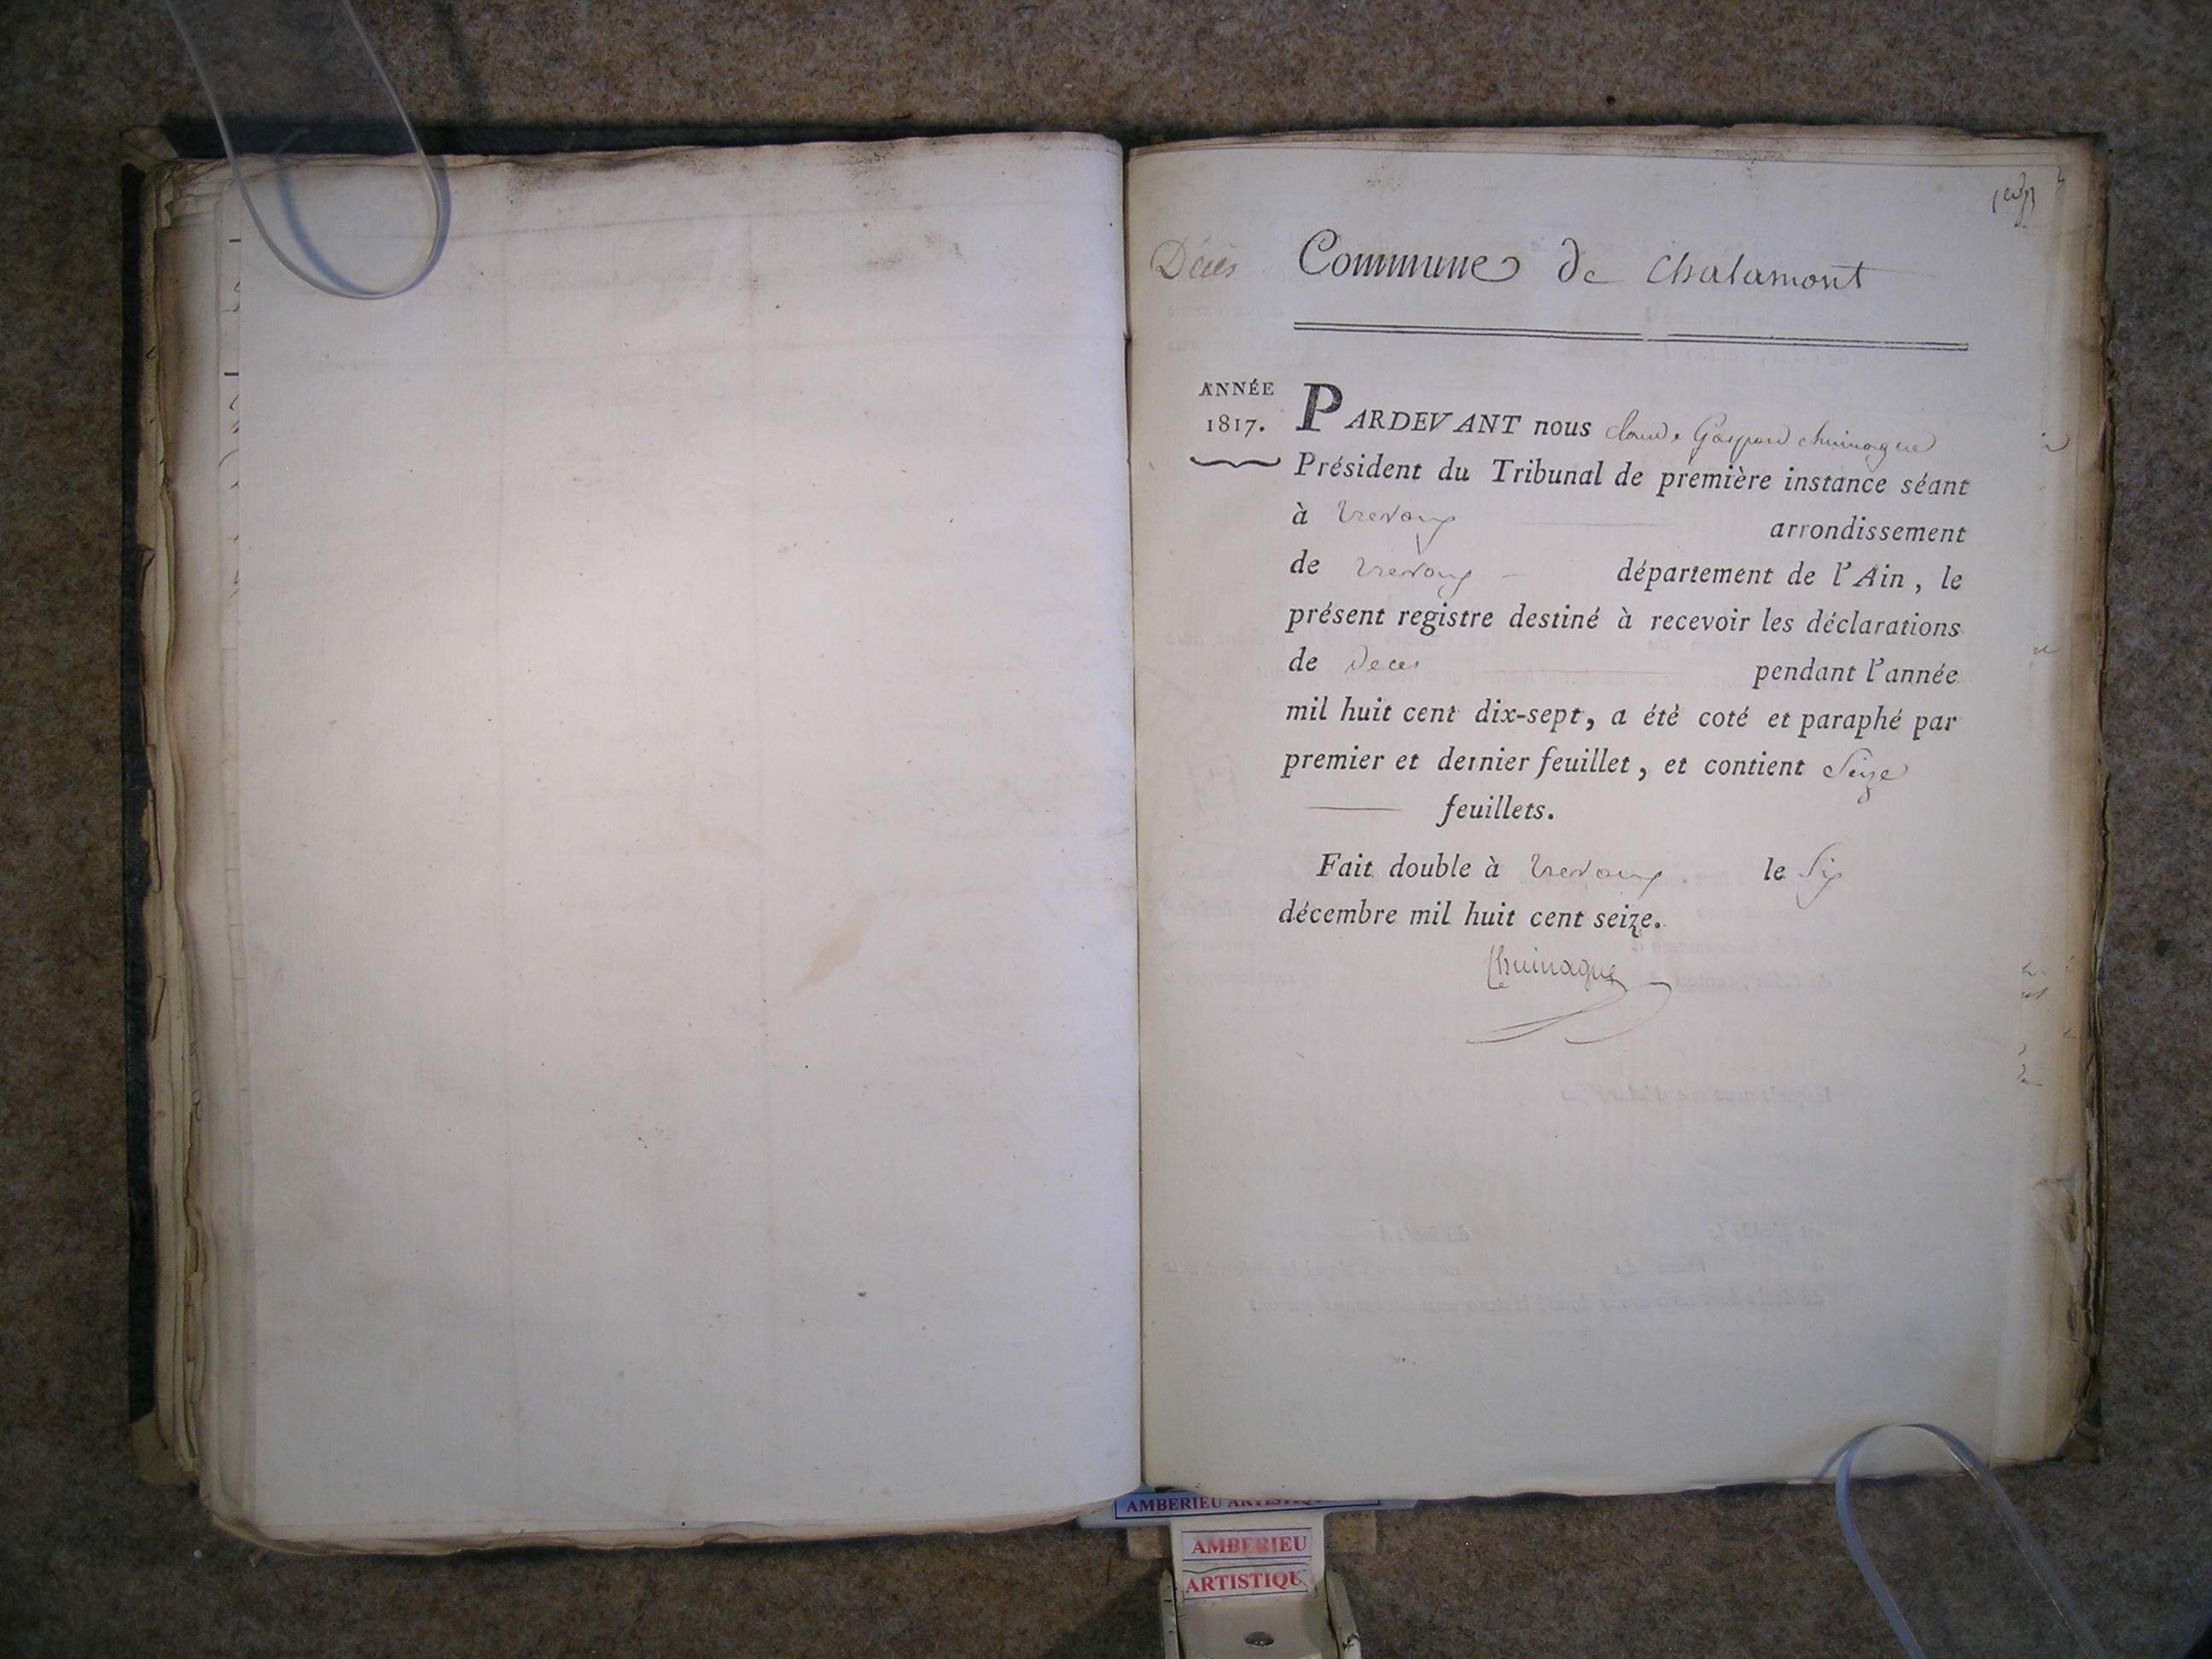 Décès
Commune de Chalamont
ANNÉE
1817.
PARDEVANT nous Claude Gaspard Chuinague
Président du Tribunal de première instance séant
à Trevoux arrondissement
de Trevoux département de l'Ain, le
présent registre destiné à recevoir les déclarations
de Deces pendant l'année
mil huit cent dix-sept, a été coté et paraphé par
premier et dernier feuillet, et contient Seize
feuillets.
Fait double à Trevoux. le Six
décembre mil huit cent seize.
Chuinague
AMBERIEU
AMBERIEU
ARTISTIQU